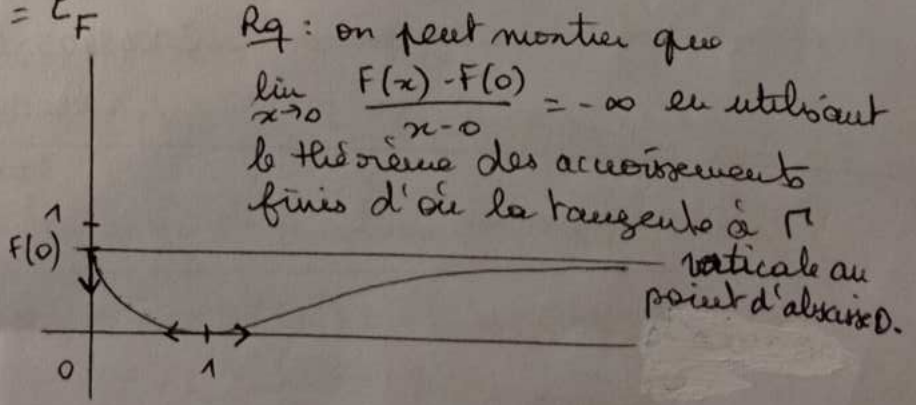 = C_F
Rq : on peut montrer que
lim x→0 (F(x) - F(0)) / (x - 0) = -∞ en utilisant
le théorème des accroissements
finis d'où la tangente à Γ
verticale au
point d'abscisse 0.
1
F(0)
0
1